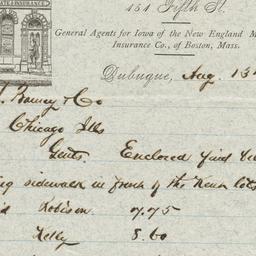 INSURANCE
151 Fifth St.
General Agents for Iowa of the New England M
Insurance Co., of Boston, Mass.
Dubuque, Aug. 13
Ranney & Co
Chicago Ills
Gents. Enclosed find
sidewalk in front of the Kenn lots
Robison 7.75
Kelly 8.60